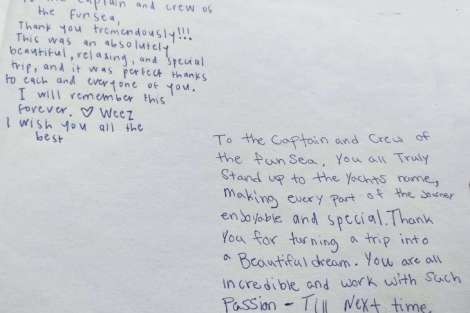 to the Captain and crew of
the Funsea,
Thank you tremendously!!!
This was an absolutely
beautiful, relaxing, and special
trip, and it was perfect thanks
to each and everyone of you.
I will remember this
forever. ♡ Weez
I wish you all the
best
To the Captain and Crew of
the fun Sea, You all Truly
Stand up to the Yachts name,
making every part of the
enjoyable and special. Thank
You for turning a trip into
a Beautiful dream. You are all
incredible and work with Such
Passion - Till Next time.